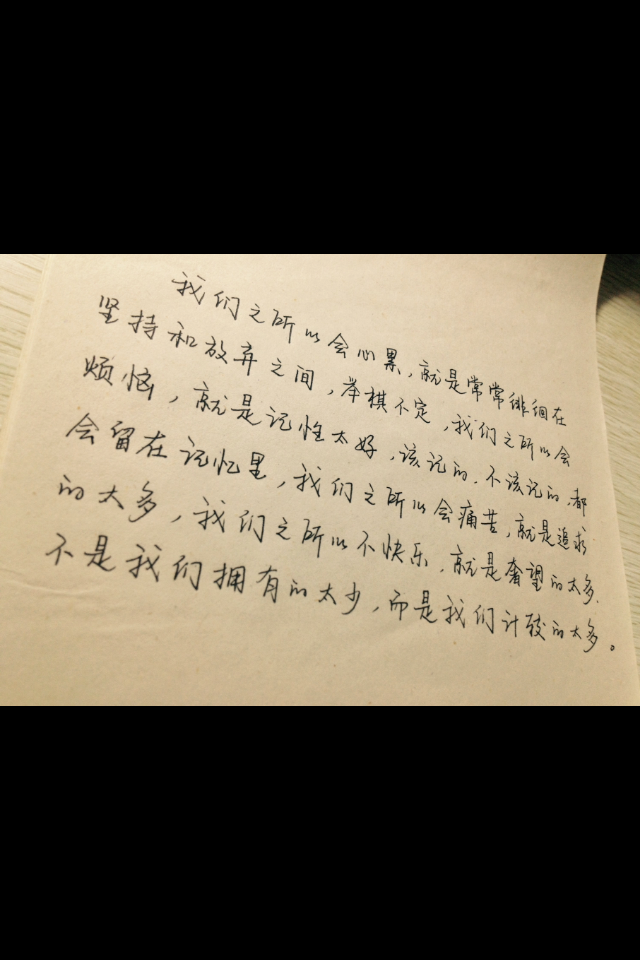 我们之所以会心累，就是常常徘徊在
坚持和放弃之间，举棋不定，我们之所以会
烦恼，就是记性太好，该记的，不该记的，都
会留在记忆里，我们之所以会痛苦，就是追求
的太多，我们之所以不快乐，就是奢望的太多，
不是我们拥有的太少，而是我们计较的太多。